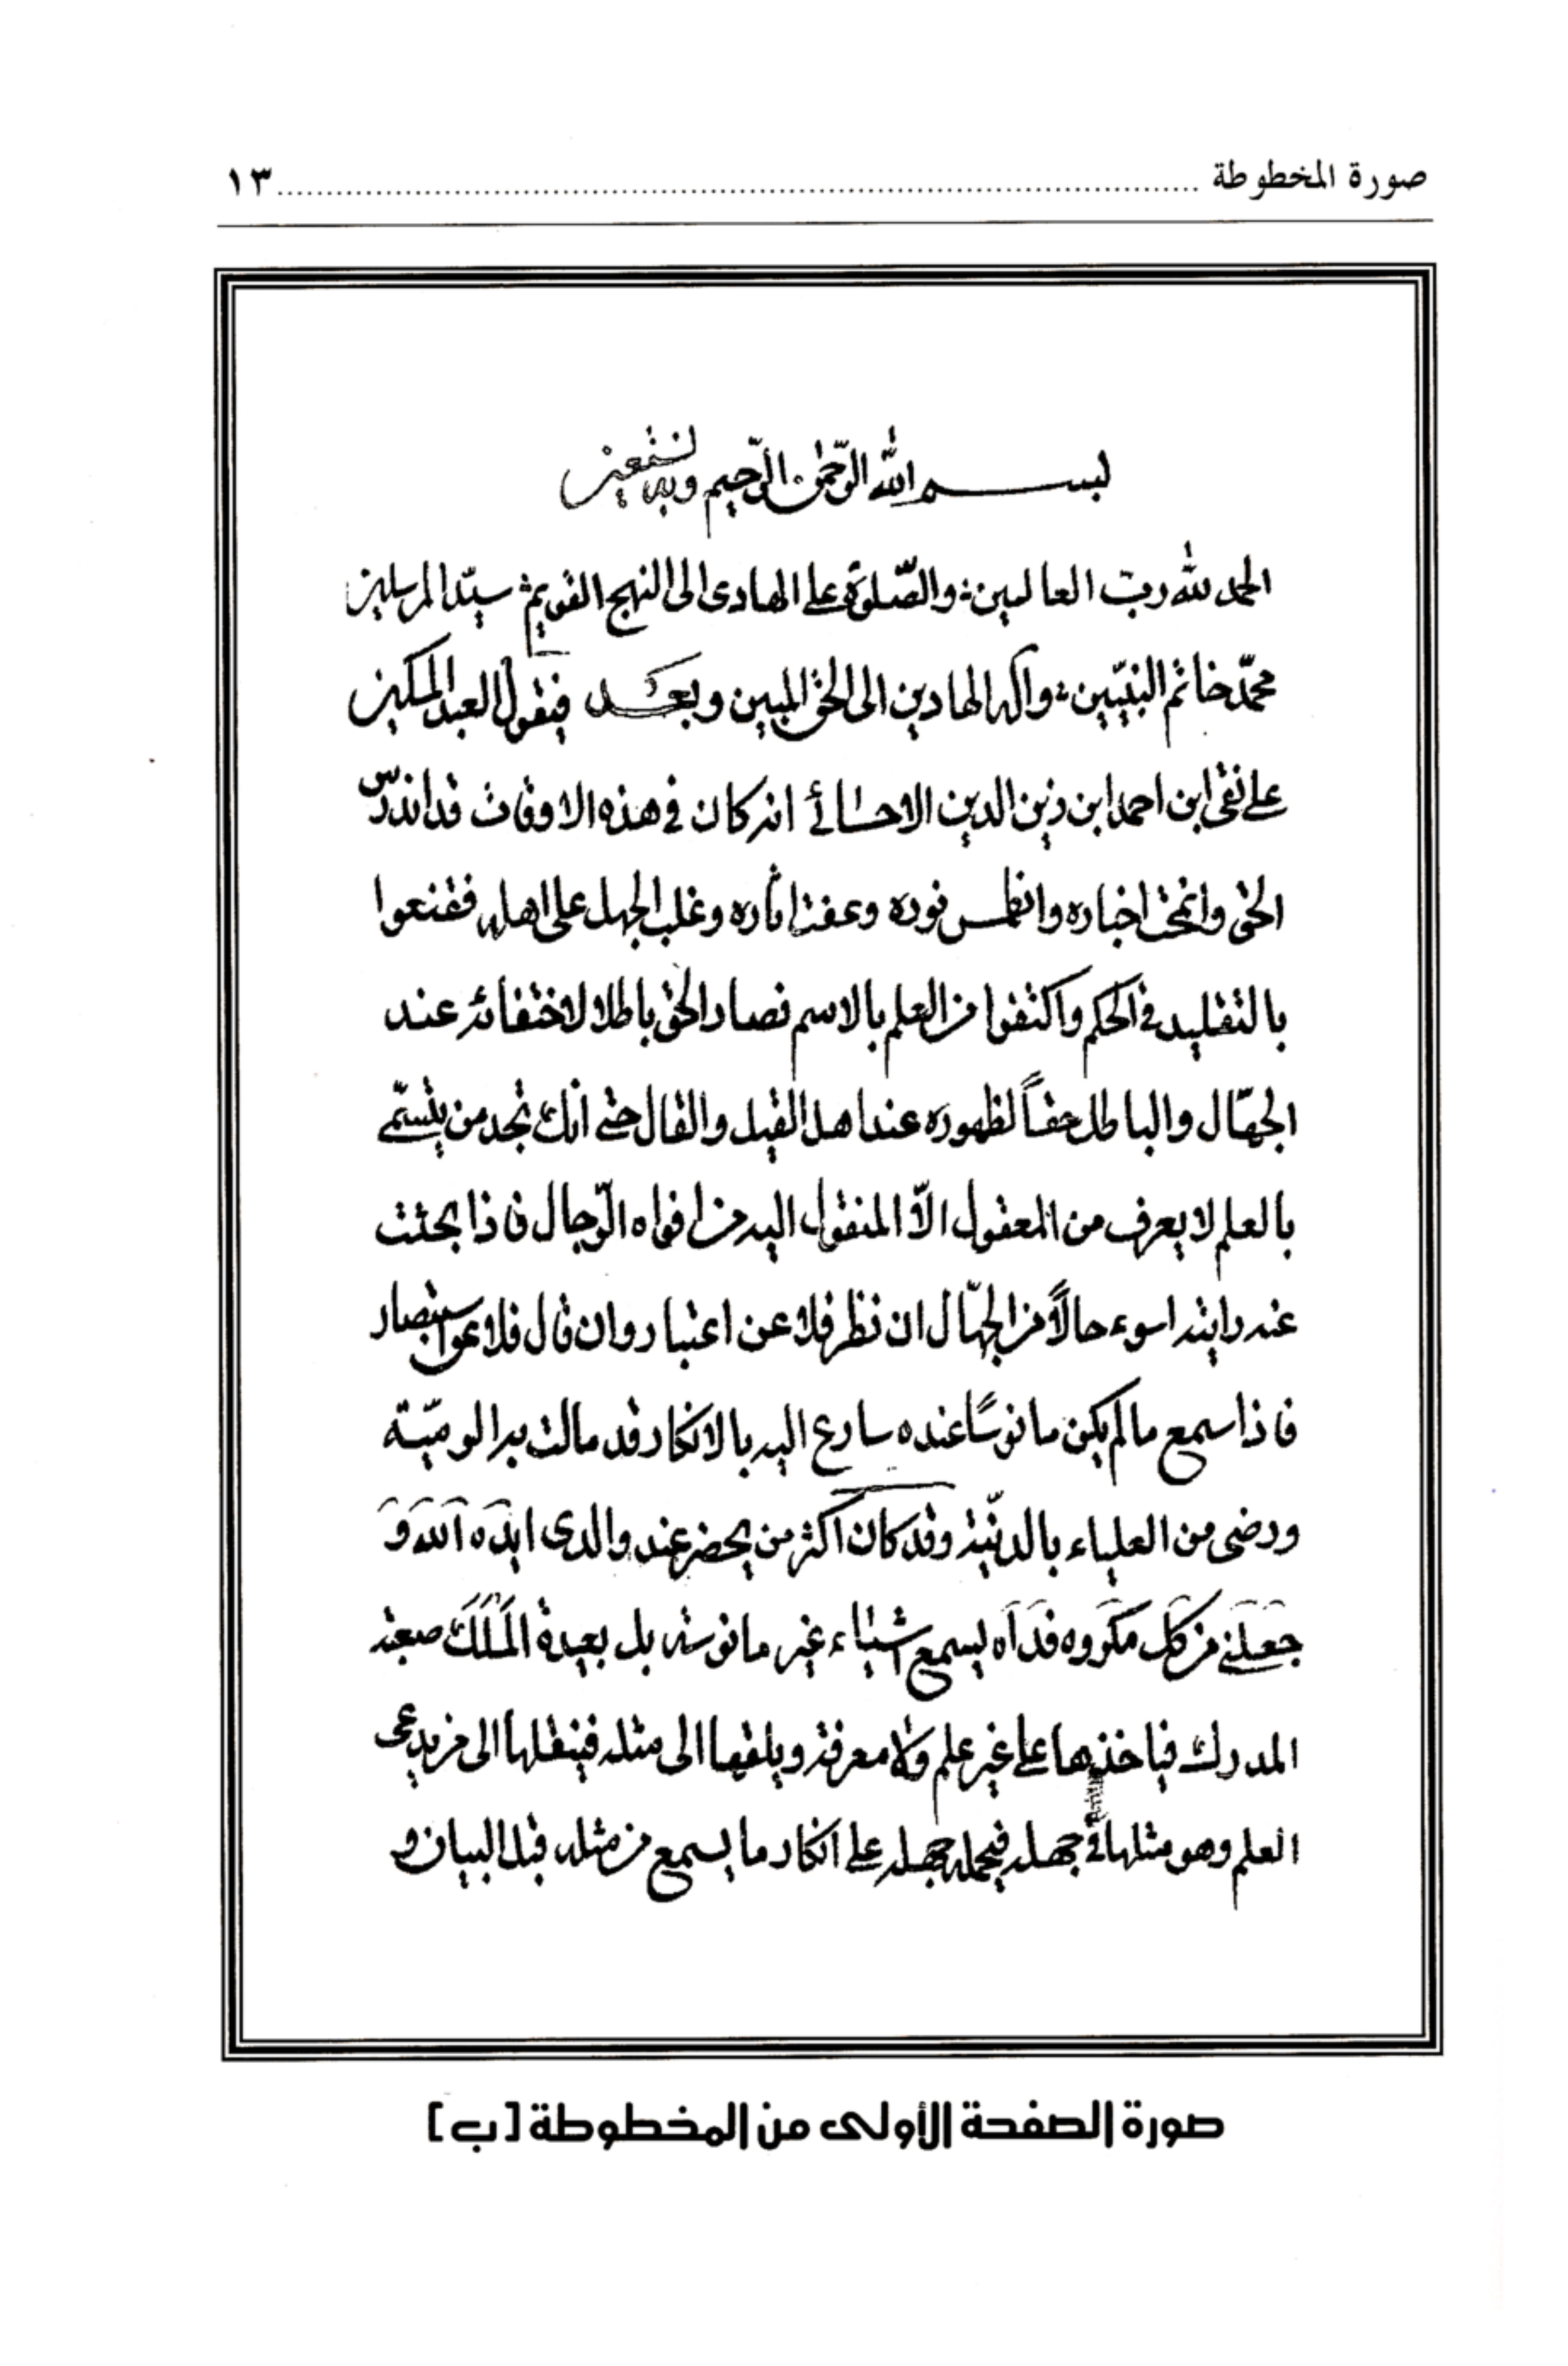 صورة المخطوطة ........................................ ١٣
بسم الله الرّحمن الرّحيم وبه نستعين
الحمد لله ربّ العالمين والصّلوة على الهادى الى النهج القويم سيّد المرسلين
محمّد خاتم النبيّين وآله الهادين الى الحق المبين وبعد فيقول العبد المسكين
على نقى ابن احمد ابن زين الدين الاحسائى انه كان فى هذه الاوقات قد اندرس
الحق وانمحت اخباره وانطمس نوره وعفت اثاره وغلب الجهل على اهله فقنعوا
بالتقليد فى الحكم واكتفوا من العلم بالاسم فصار الحق باطلا لاختفائه عند
الجهّال والباطل حقاً لظهوره عند اهل القيل والقال حتى انك تجد من يتسمّى
بالعلم لا يعرف من المعقول الّا المنقول اليه من افواه الرّجال فاذا بحثت
عنه رايته اسوء حالاً من الجهّال ان نظر فلا عن اعتبار وان قال فلا عن استبصار
فاذا سمع ما لم يكن مانوسًا عنده سارع اليه بالانكار قد مالت به الوميّة
ورضى من العلياء بالدنيّة وقد كان اكثر من يحضر عند والدى ايّده الله و
جعلنى من كل مكروه فداه يسمع اشياء غير مانوسة بل بعيدة المسلك صعبة
المدرك فياخذها على غير علم ولا معرفة ويلقيها الى مثله فينقلها الى من يدعى
العلم وهو مثلها فى جهله فيحمله جهله على انكار ما يسمع من مثله قبل البيان و
صورة الصفحة الأولى من المخطوطة [ب]